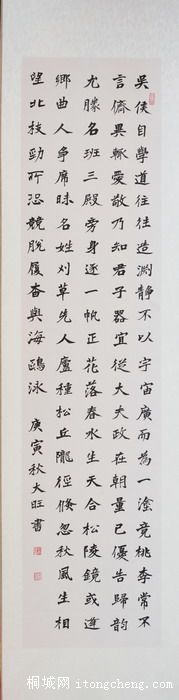 吴侯自學道往往造渊静不以宇宙廣而為一塗竟桃李常不
言儕異輒愛敬乃知君子器宜從大夫政在朝量已優告歸韵
尤勝名班三殿旁身逐一帆正花落春水生天合松陵鏡或遵
鄉曲人争席昧名姓刈草先人廬種松丘隴徑倏忽秋風生相
望北枝勁所恐競脱履奋與海鷗泳 庚寅秋大旺書
桐城网 itongcheng.com